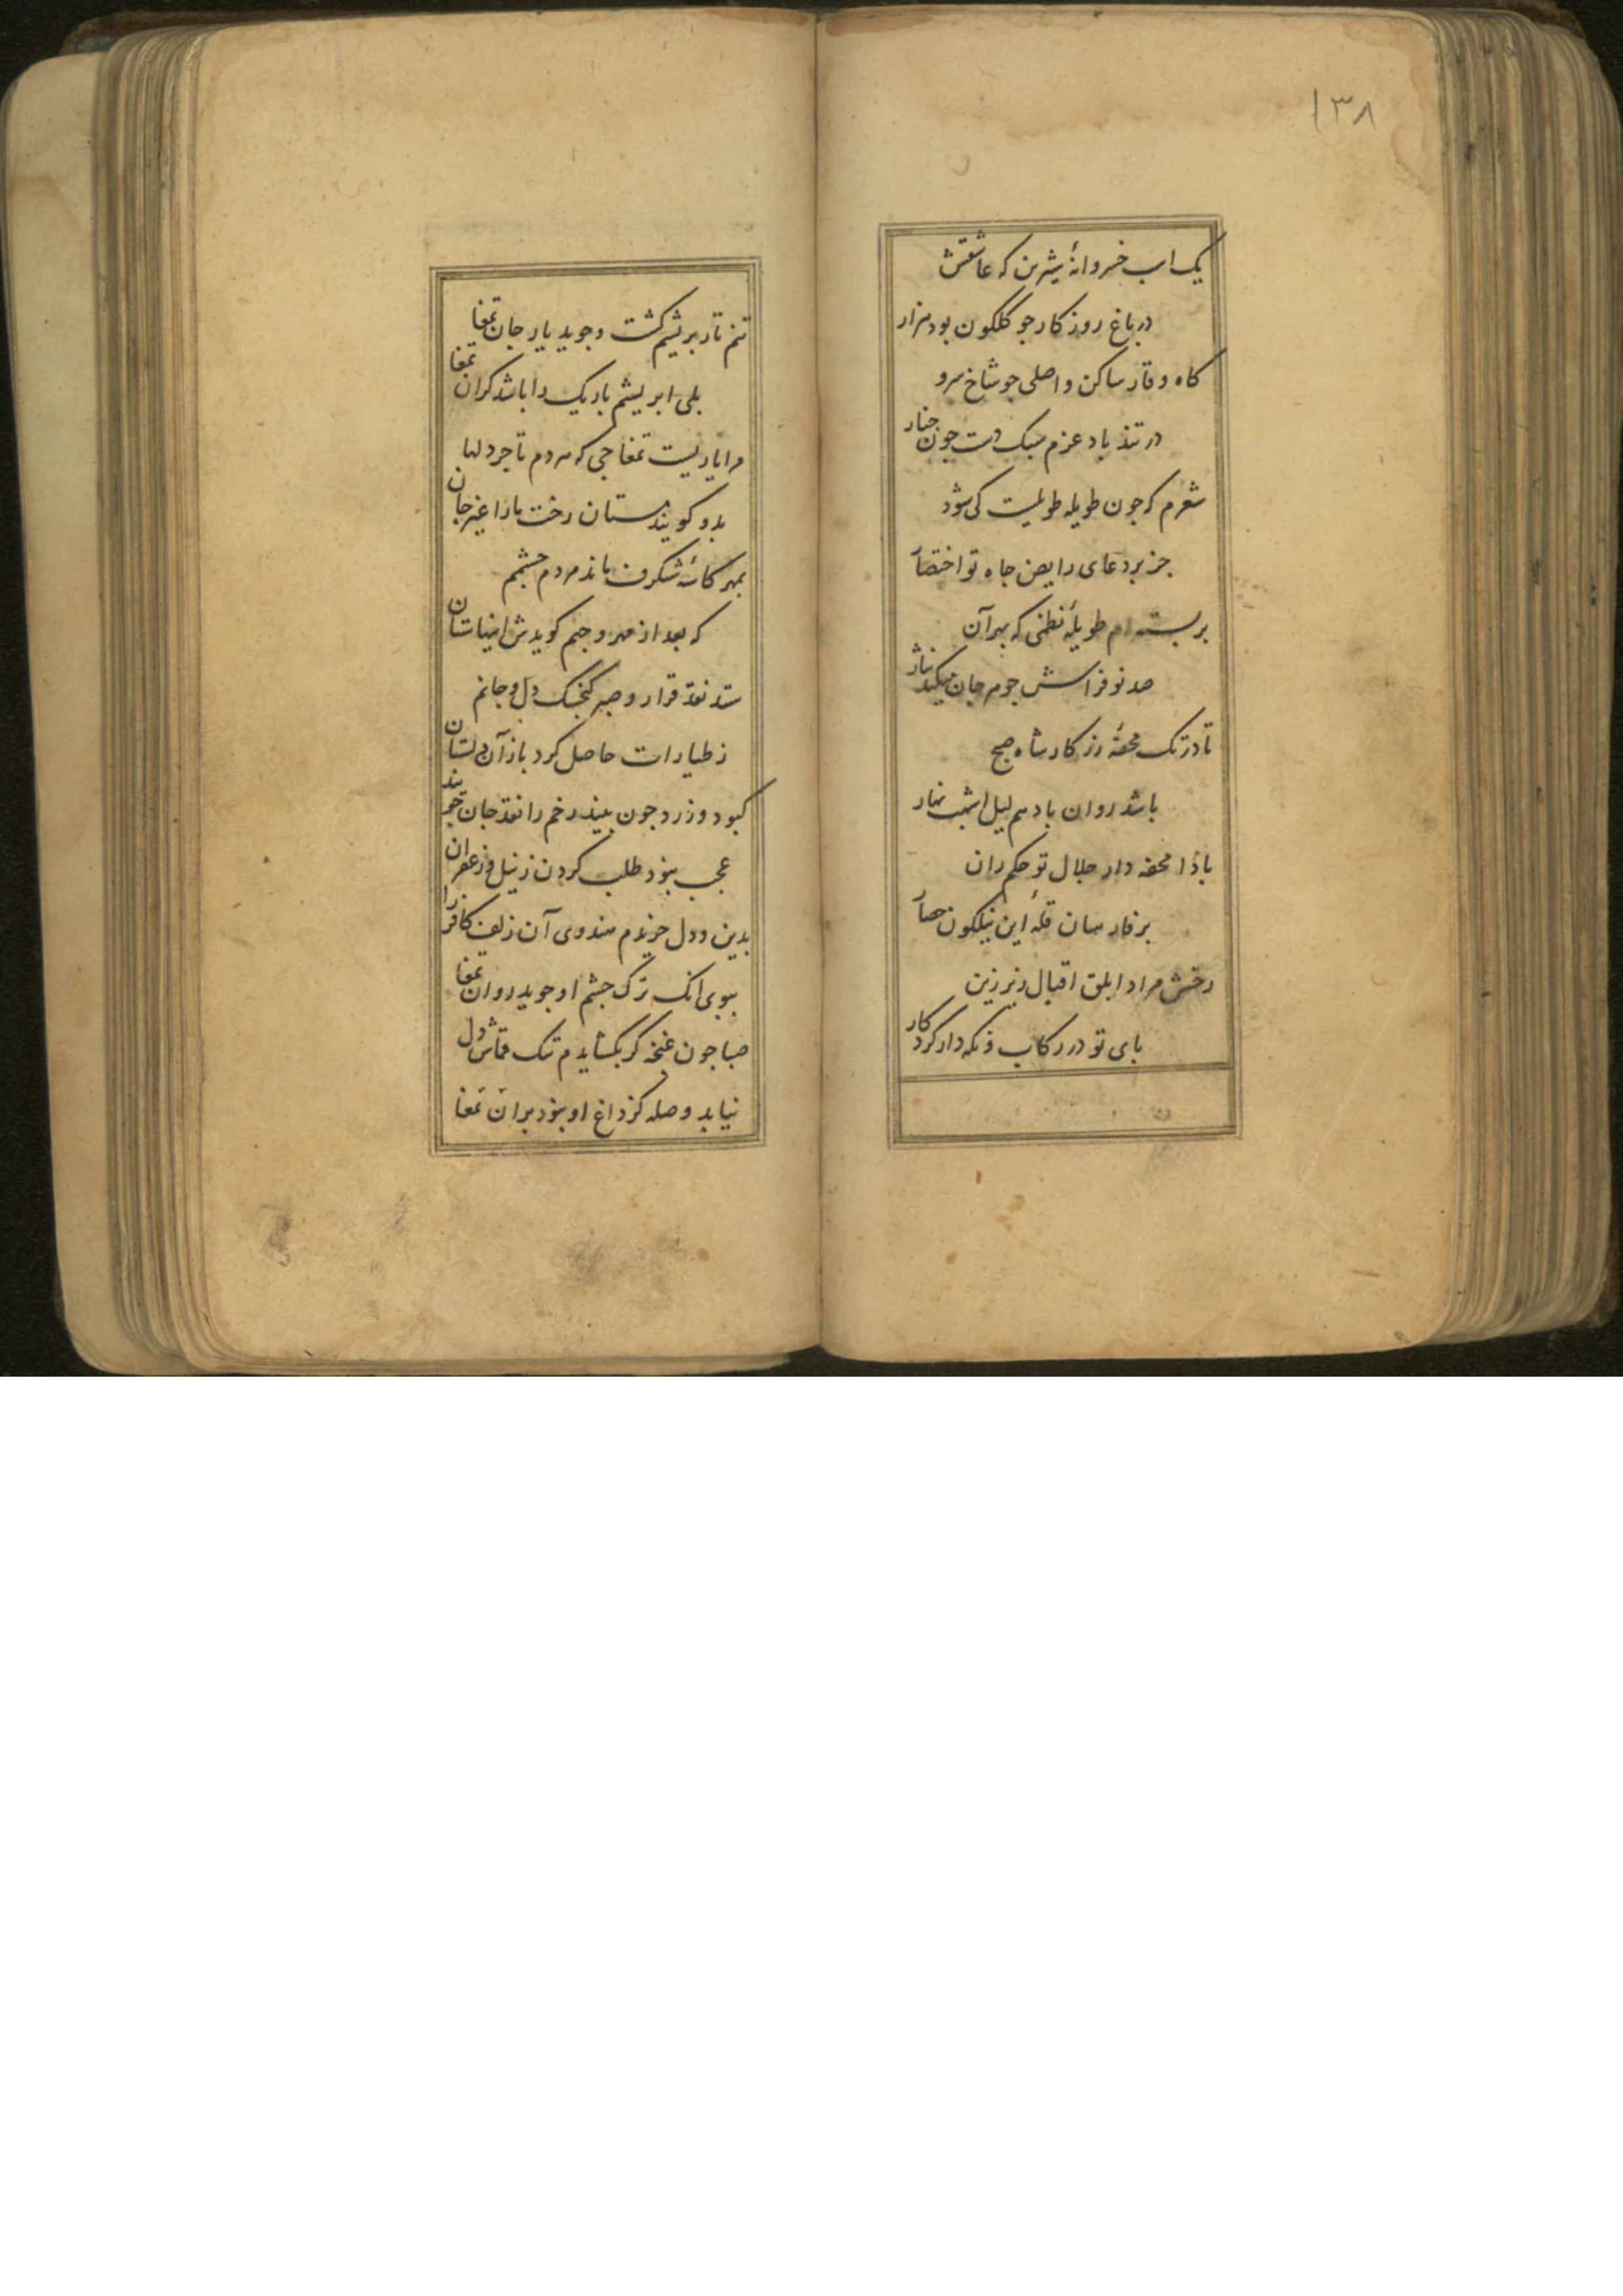 ۱۳۸
یک اسب خسروانهٔ شیرین که عاشقش
در باغ روزکار جو کلکون بود هزار
کاه وقار ساکن و اصلی جو شاخ سرو
در تند باد عزم سبک دست جون جنار
شعرم که جون طویله طویلیست کی شود
جز بر دعای رایض جاه تو اختصار
بر بسته ام طویلهٔ نظمی که بهر آن
صد نو فراسش جوهر جان میکند نثار
تا در تک محفهٔ زر کار شاه صبح
باشد روان بادهم لیل اشهب نهار
بادا محفه دار جلال تو حکم ران
بر فارسان قلهٔ این نیلکون حصار
رخش مراد ابلق اقبال زیر زین
بای تو در رکاب و نکه دار کردکار
تنم تار بریشم کشت و جوید یار جان تمغا
بلی ابریشم باریک را باشد کران تمغا
مرا یاریست تمغاجی که مردم تاجر دلها
بدو کویند بستان رخت ما را غیر جان
بمهر کاسهٔ شنکرف ماند مردم جشمم
که بعد از مهر و جم کویدش اینا ستان
ستد نقد قرار و صبر کنجک دل و جانم
ز طیارات حاصل کرد باز آن دلستان
کبود و زرد جون بیند رخم را نقد جان
عجب نبود طلب کردن ز نیل و زعفران
بدین و دل خریدم هندوی آن زلف کافر را
ببوی انک ترک جشم او جوید روان تمغا
صبا جون غنجه کر بکشایدم تنک قماش دل
نیابد وصله کز داغ او نبود بران تمغا